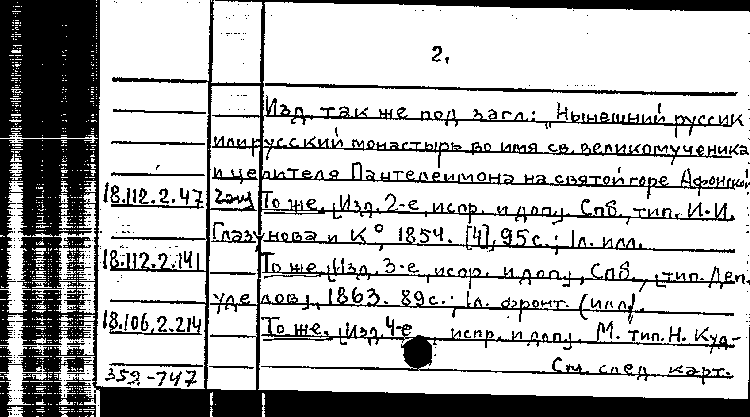 2.
Изд. так же под загл.: „Нынешний руссик
или русский монастырь во имя св. великомученика
и целителя Пантелеимона на святой горе Афонской
18.112.2.47 То же. [Изд. 2-е, испр. и доп.], Спб., тип. И.И.
Глазунова и К°, 1854. [4], 95 с.; 1 л. илл.
18.112.2.141 То же. [Изд. 3-е, испр. и доп.], Спб., [тип. Деп.
уделов], 1863. 89 с.; 1 л. фронт. (илл).
18.106.2.214 То же. [Изд. 4-е, испр. и доп]. М. тип. Н. Куд-
359-747 См. след. карт.